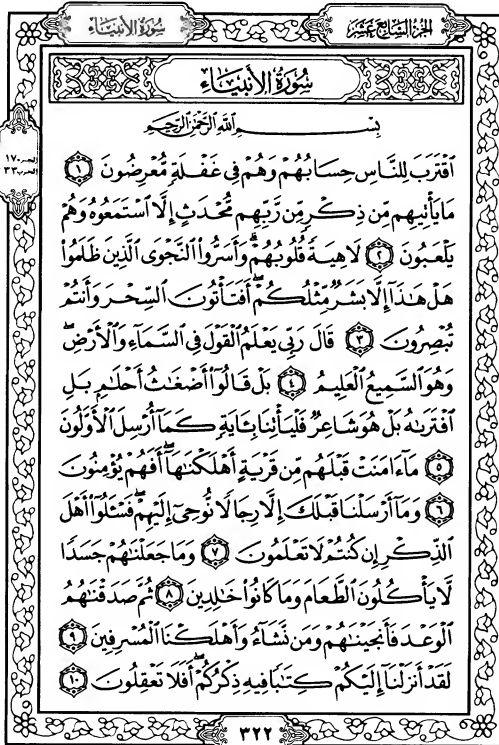 الجزء السابع عشر
سورة الأنبياء
سُورَةُ الأَنبِيَاءِ
بِسْمِ اللَّهِ الرَّحْمَٰنِ الرَّحِيمِ
الجزء ١٧
الحزب ٣٣
ٱقۡتَرَبَ لِلنَّاسِ حِسَابُهُمۡ وَهُمۡ فِي غَفۡلَةٖ مُّعۡرِضُونَ ١
مَا يَأۡتِيهِم مِّن ذِكۡرٖ مِّن رَّبِّهِم مُّحۡدَثٍ إِلَّا ٱسۡتَمَعُوهُ وَهُمۡ
يَلۡعَبُونَ ٢ لَاهِيَةٗ قُلُوبُهُمۡۗ وَأَسَرُّواْ ٱلنَّجۡوَى ٱلَّذِينَ ظَلَمُواْ
هَلۡ هَٰذَآ إِلَّا بَشَرٞ مِّثۡلُكُمۡۖ أَفَتَأۡتُونَ ٱلسِّحۡرَ وَأَنتُمۡ
تُبۡصِرُونَ ٣ قَالَ رَبِّي يَعۡلَمُ ٱلۡقَوۡلَ فِي ٱلسَّمَآءِ وَٱلۡأَرۡضِۖ
وَهُوَ ٱلسَّمِيعُ ٱلۡعَلِيمُ ٤ بَلۡ قَالُوٓاْ أَضۡغَٰثُ أَحۡلَٰمِۭ بَلِ
ٱفۡتَرَىٰهُ بَلۡ هُوَ شَاعِرٞ فَلۡيَأۡتِنَا بِـَٔايَةٖ كَمَآ أُرۡسِلَ ٱلۡأَوَّلُونَ
٥ مَآ ءَامَنَتۡ قَبۡلَهُم مِّن قَرۡيَةٍ أَهۡلَكۡنَٰهَآۖ أَفَهُمۡ يُؤۡمِنُونَ
٦ وَمَآ أَرۡسَلۡنَا قَبۡلَكَ إِلَّا رِجَالٗا نُّوحِيٓ إِلَيۡهِمۡۖ فَسۡـَٔلُوٓاْ أَهۡلَ
ٱلذِّكۡرِ إِن كُنتُمۡ لَا تَعۡلَمُونَ ٧ وَمَا جَعَلۡنَٰهُمۡ جَسَدٗا
لَّا يَأۡكُلُونَ ٱلطَّعَامَ وَمَا كَانُواْ خَٰلِدِينَ ٨ ثُمَّ صَدَقۡنَٰهُمُ
ٱلۡوَعۡدَ فَأَنجَيۡنَٰهُمۡ وَمَن نَّشَآءُ وَأَهۡلَكۡنَا ٱلۡمُسۡرِفِينَ ٩
لَقَدۡ أَنزَلۡنَآ إِلَيۡكُمۡ كِتَٰبٗا فِيهِ ذِكۡرُكُمۡۚ أَفَلَا تَعۡقِلُونَ ١٠
٣٢٢